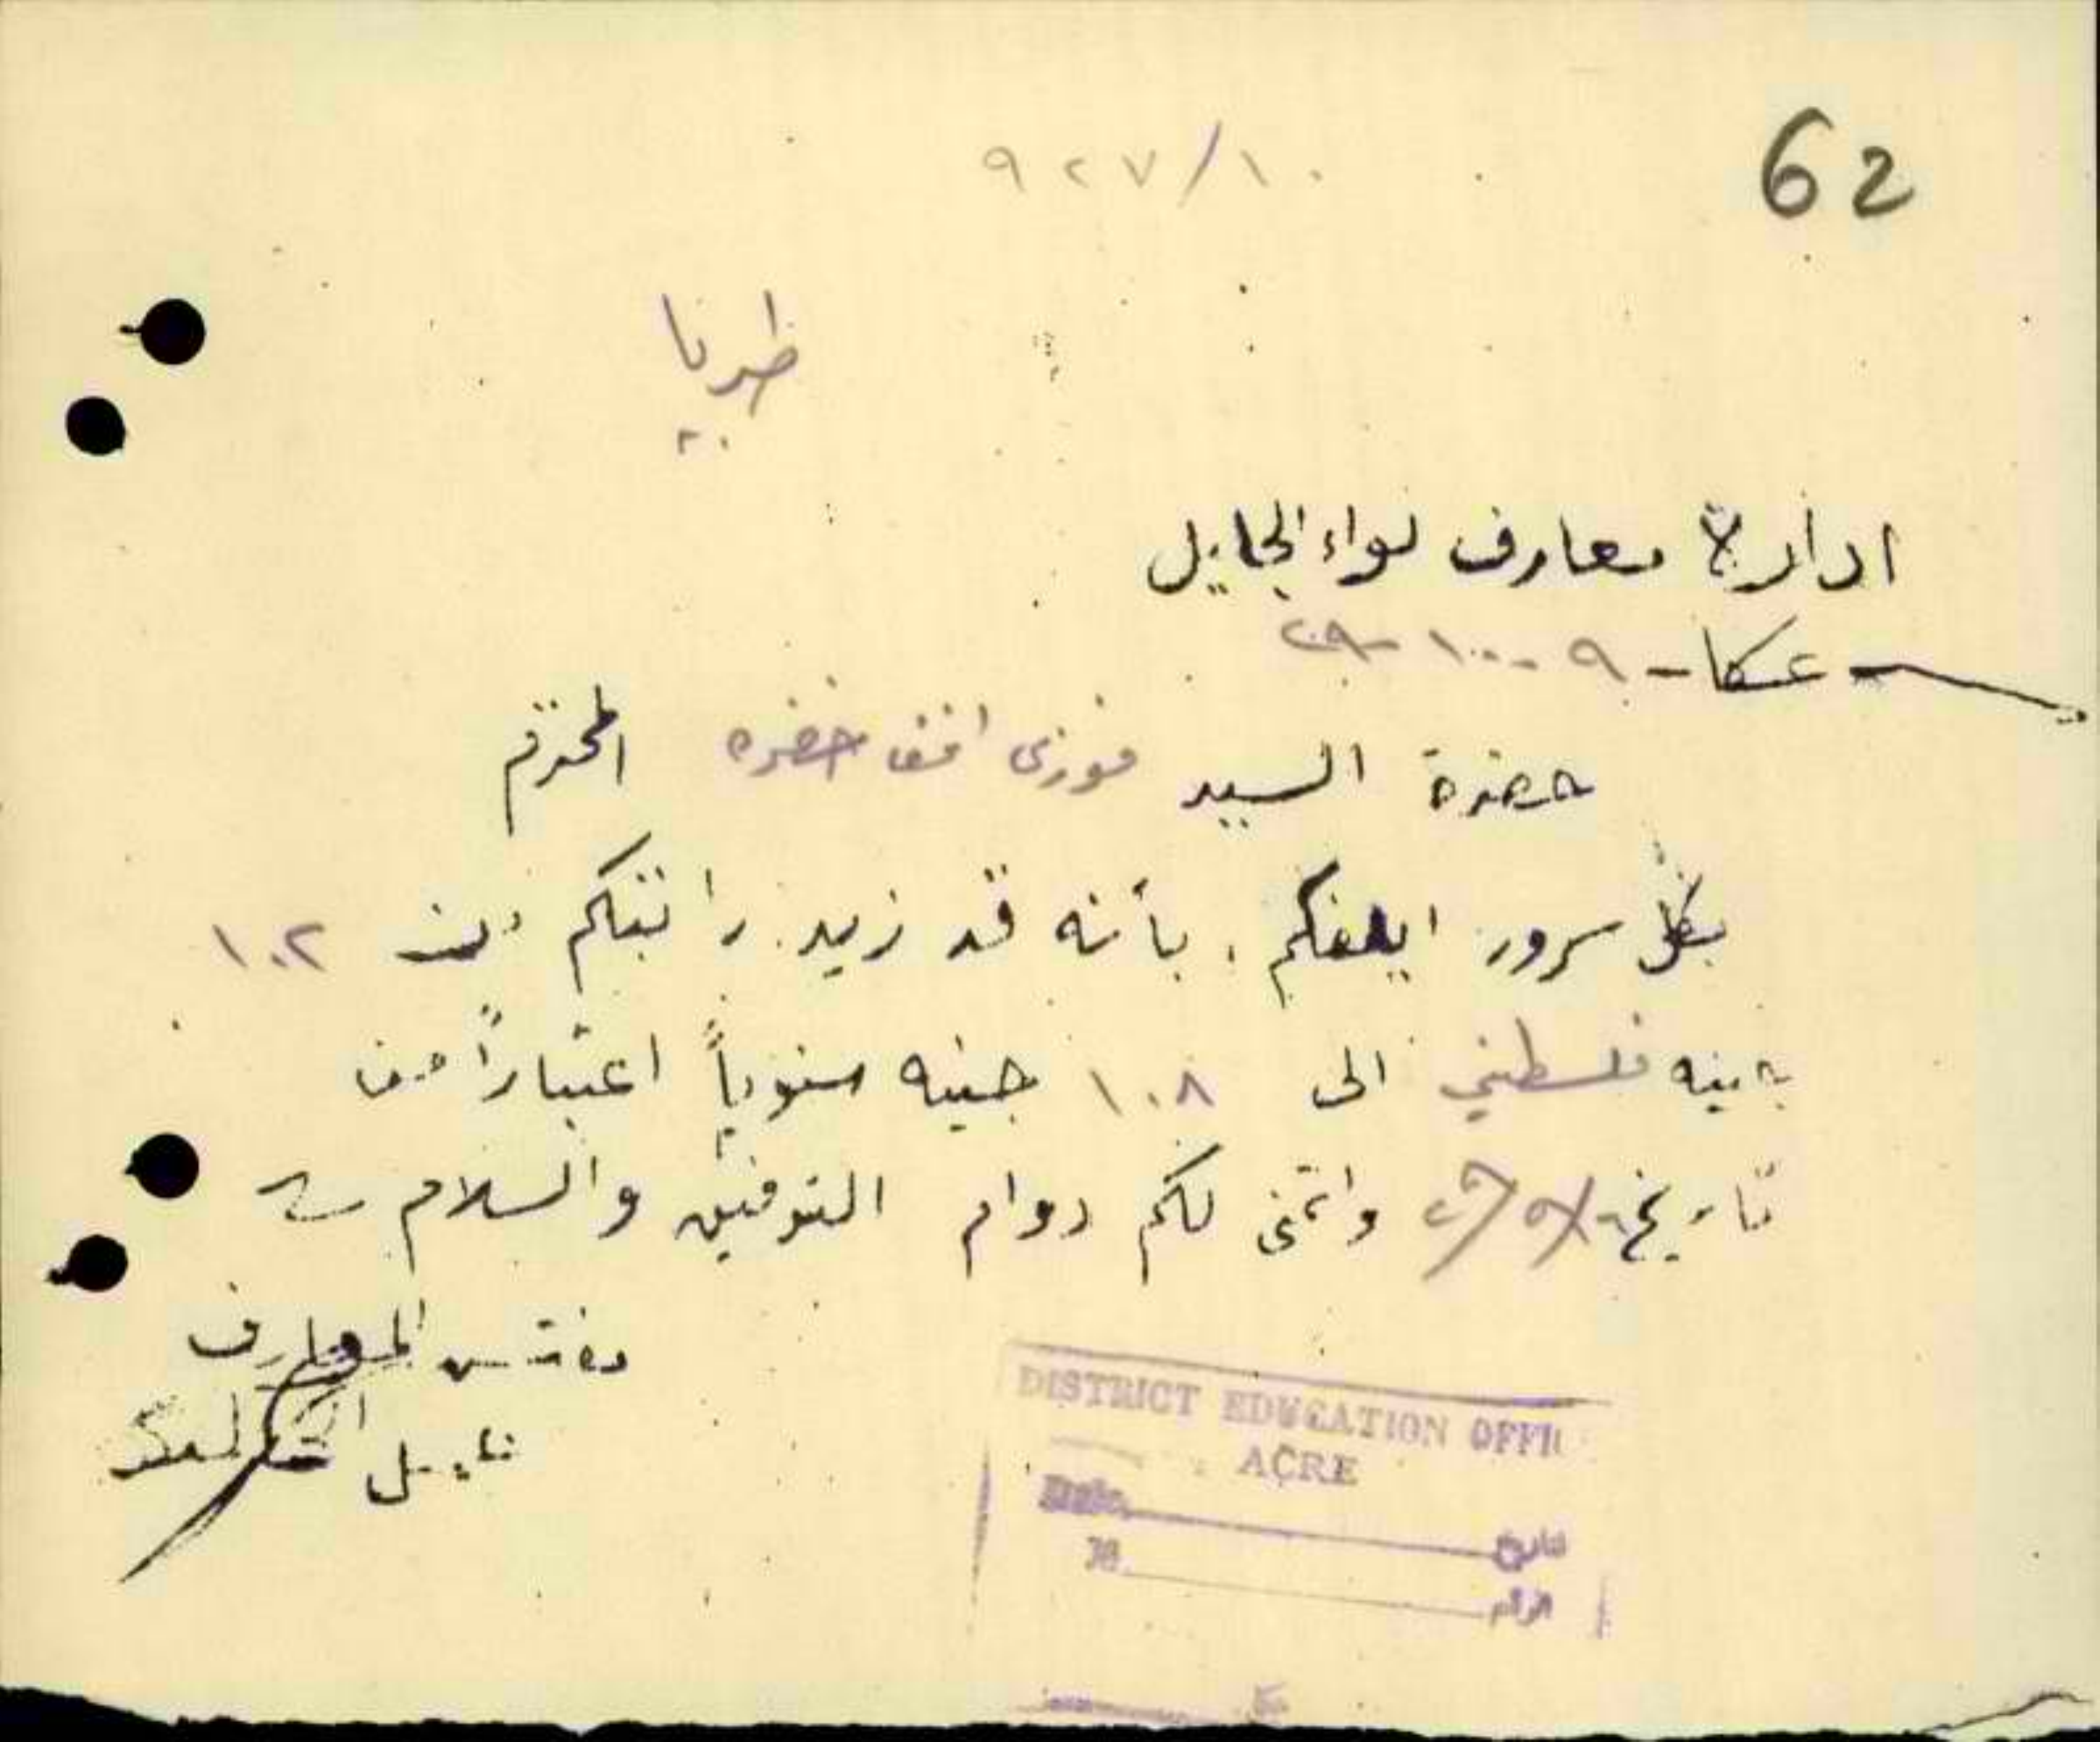 62
٩٢٧/١٠
طبريا
ادارة معارف لواء الجليل
عكا - ٩ - ١٠ -
حضرة السيد فوزي افندي خضره المحترم
بكل سرور ابلغكم بأنه قد زيد راتبكم من ١٠٢
جنيه فلسطيني الى ١٠٨ جنيه سنوياً اعتباراً من
تاريخ واتمنى لكم دوام التوفيق والسلام
مفتش المعارف
DISTRICT EDUCATION OFFI
ACRE
Date تاريخ
الرقم